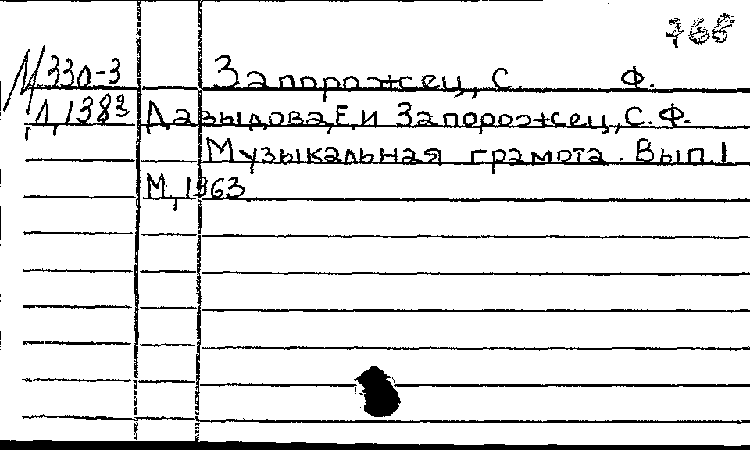 768
М330-3 Запорожец, С. Ф.
Л,1383 Давыдова,Е.И Запорожец, С. Ф.
Музыкальная грамота. Вып.1
М.,1963